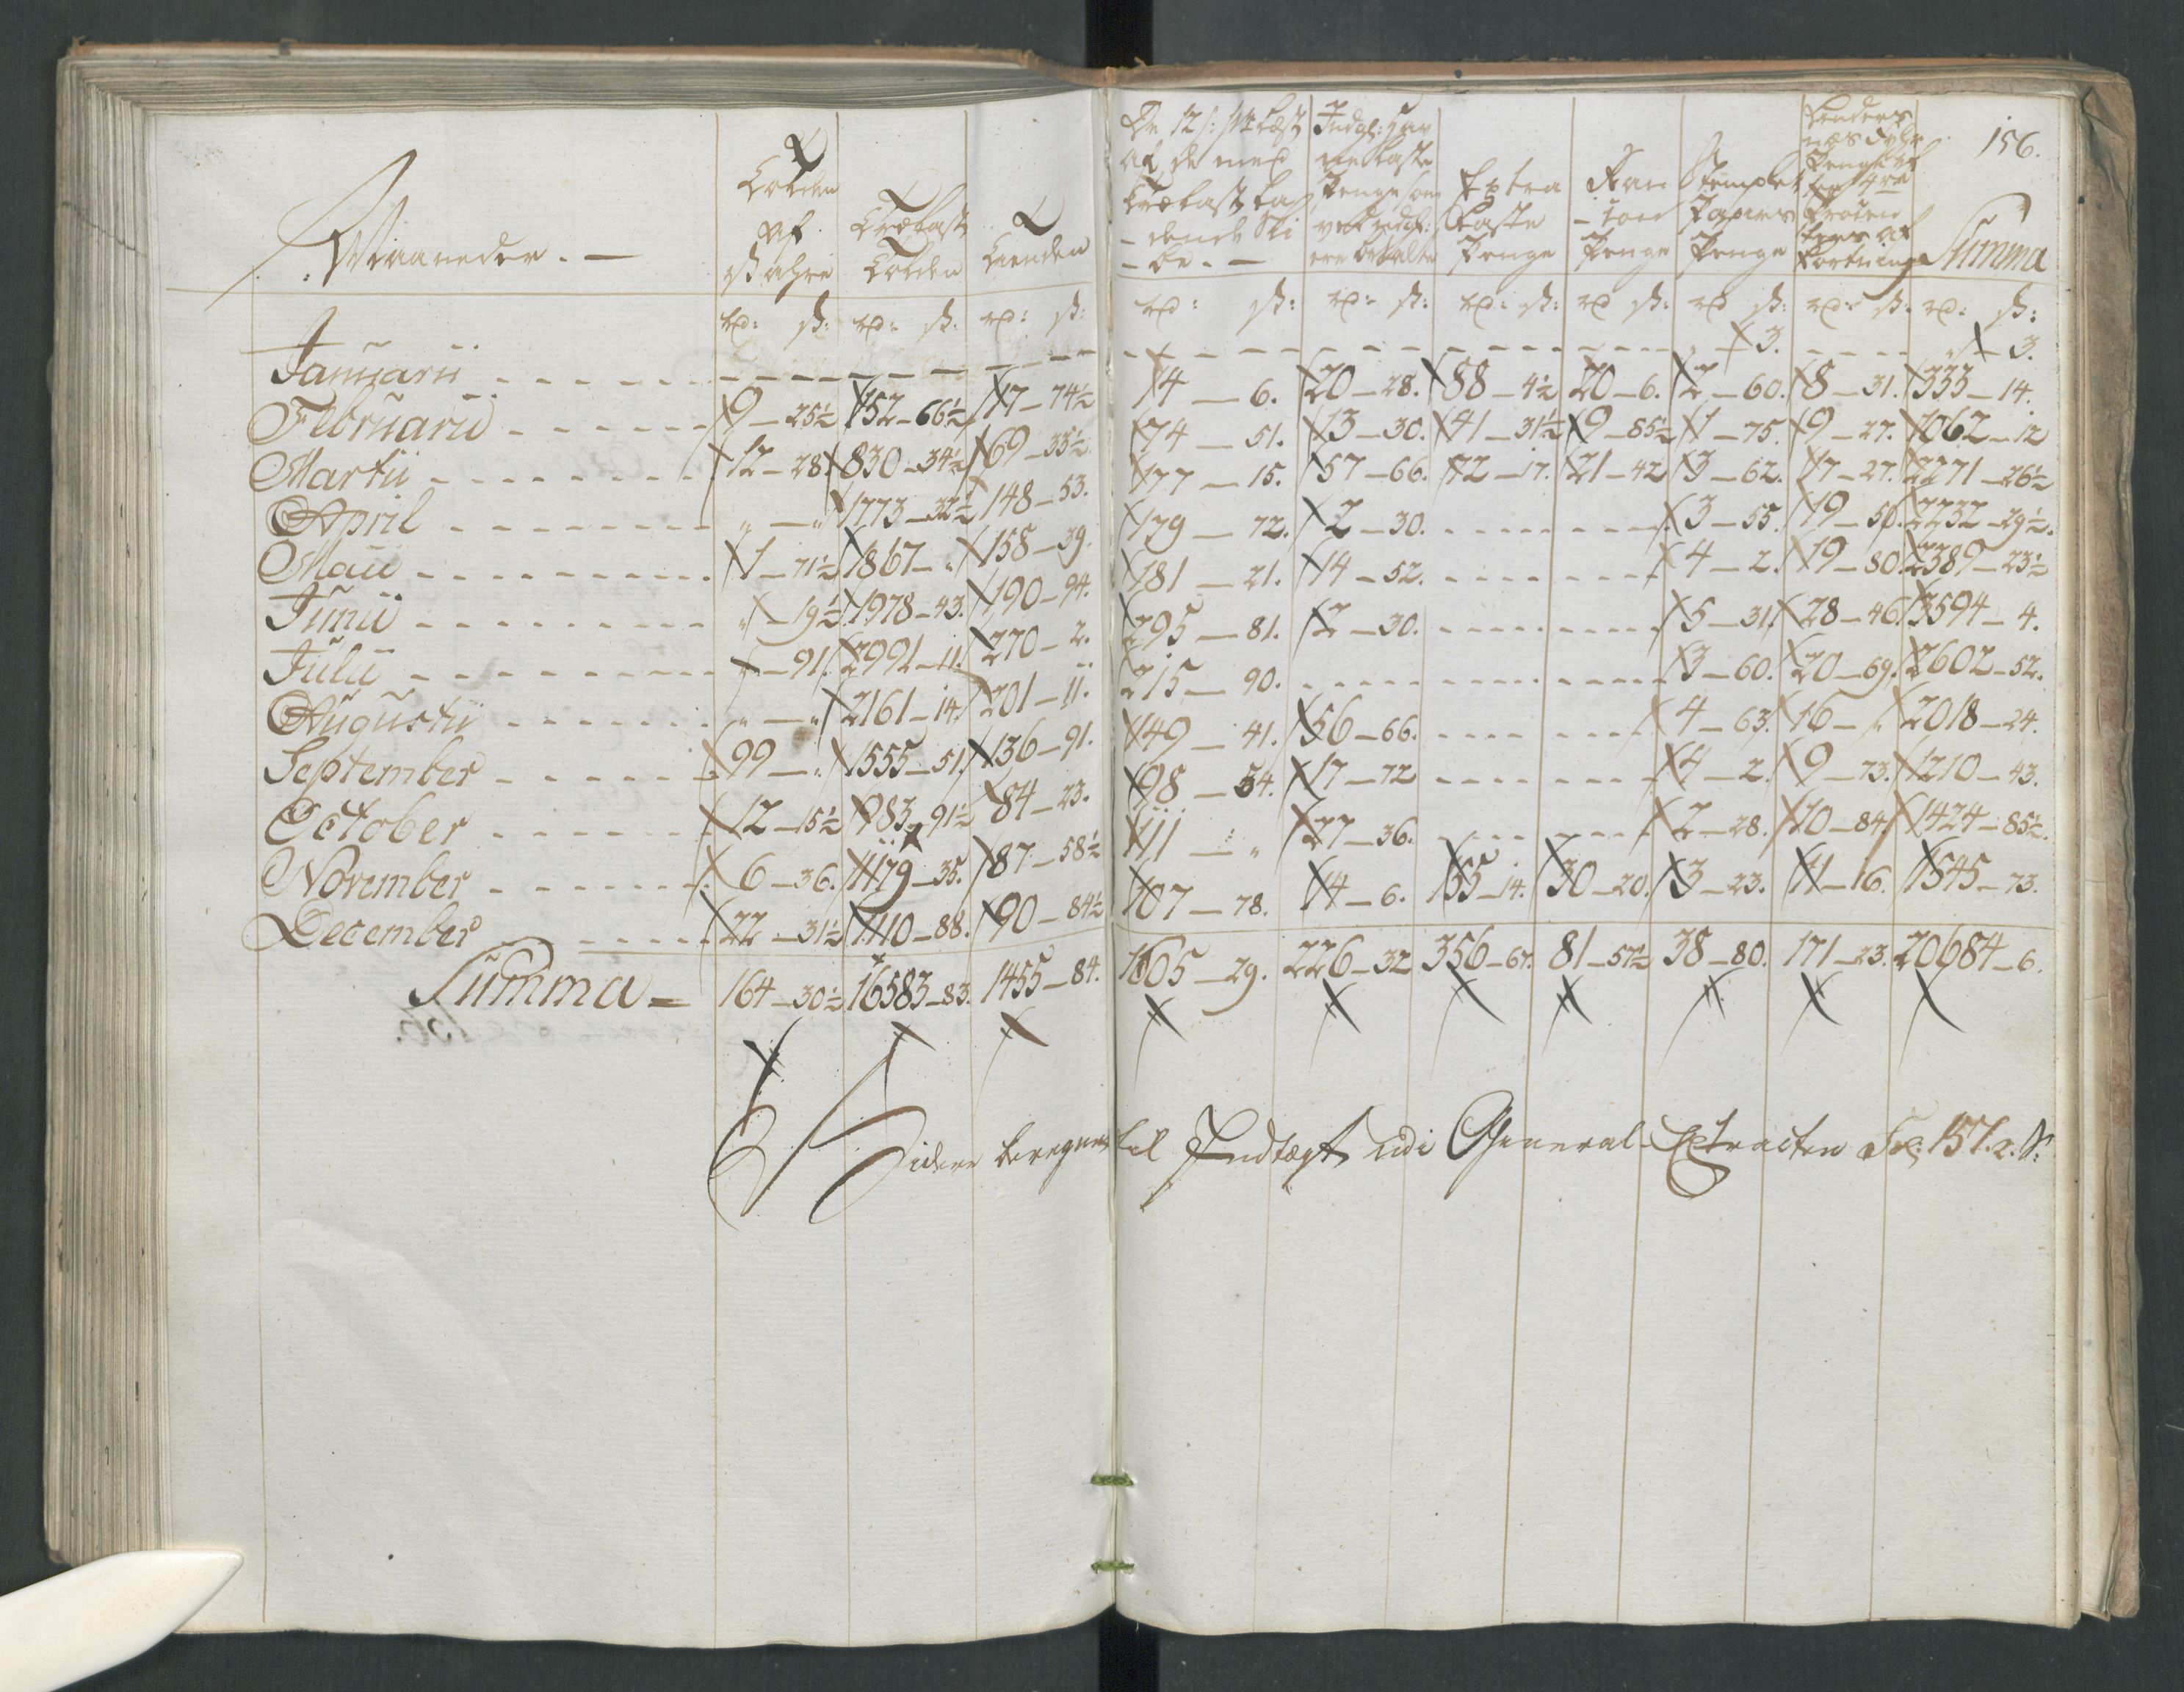 156.
Maaneder. —
Tolden af Wahre
Trælast Tolden
Tienden
De 12 s: pr Læst af de med Trælast la- dende Ski- be. —
Indgl: Hav ne Laste Penge som ved Indgl: ere betalte
Extra Laste Penge
Ran- tion Penge
Stemplet Papiirs Penge
Penge af Procen
Summa
rd: s: rd: s: rd: s: rd: s: rd: s: rd: s: rd s: rd s: rd: s: rd: s:
Januarii - - - - - - - - 3. - - - - „ - 3.
Februarii - - - - 9 - 25½ 152 - 66½ 17 - 74½ 14 - 6. 20 - 28. 88 - 4½ 20 - 6. 2 - 60. 8 - 31. 333 - 14.
Martii - - - - 12 - 28. 830 - 34½ 69 - 33½ 74 - 51. 13 - 30. 41 - 31½ 9 - 85½ 1 - 75. 9 - 27. 1062 - 12
April - - - - „ - „ 1773 - 32½ 148 - 53. 177 - 15. 57 - 66. 72 - 17. 21 - 42 3 - 62. 17 - 27. 2271 - 26½
Maii - - - - 1 - 71½ 1867 - „ 158 - 39. 179 - 72. 2 - 30. - - - - 3 - 55. 19 - 50. 2232 - 29½.
Junii - - - - „ - 19½ 1978 - 43. 190 - 94. 181 - 21. 14 - 52. - - - - 4 - 2. 19 - 80. 2389 - 23½
Julii - - - - - 91. 2991 - 11. 270 - 2. 295 - 81. 2 - 30. - - - - 5 - 31. 28 - 46. 3594 - 4.
Augustii - - - - „ - „ 2161 - 14. 201 - 11. 215 - 90. - - - - 3 - 60. 20 - 69. 2602 - 52.
September - - - - 99 - „ 1555 - 51. 136 - 91. 149 - 41. 56 - 66. - - - - 4 - 63. 16 - „ 2018 - 24.
October - - - - 12 - 15½ 983 - 91½ 84 - 23. 98 - 54. 17 - 72 - - - - 4 - 2. 9 - 73. 1210 - 43.
November - - - - 6 - 36. 1179 - 35. 87 - 58½ 111 - „ 27 - 36. - - - - 2 - 28. 10 - 84. 1424 - 85½.
December - - - - 22 - 31½ 1110 - 88. 90 - 84½ 107 - 78. 14 - 6. 155 - 14. 30 - 20. 3 - 23. 11 - 16. 1545 - 73.
Summa = 164 - 30½ 16583 - 83. 1455 - 84. 1605 - 29. 226 - 32 356 - 67. 81 - 57½ 38 - 80. 171 - 23. 20684 - 6.
Videre beregnes til Indtægt udi General-Extracten Fol: 157. 2. S: